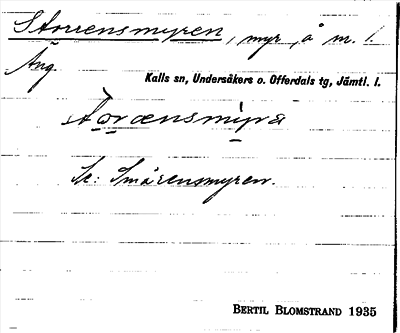 Storrensmyren, myr, å m. l.
Äng.
Kalls sn, Undersåkers o. Offerdals tg, Jämtl. l.
Se: Smårensmyren.
BERTIL BLOMSTRAND 1935